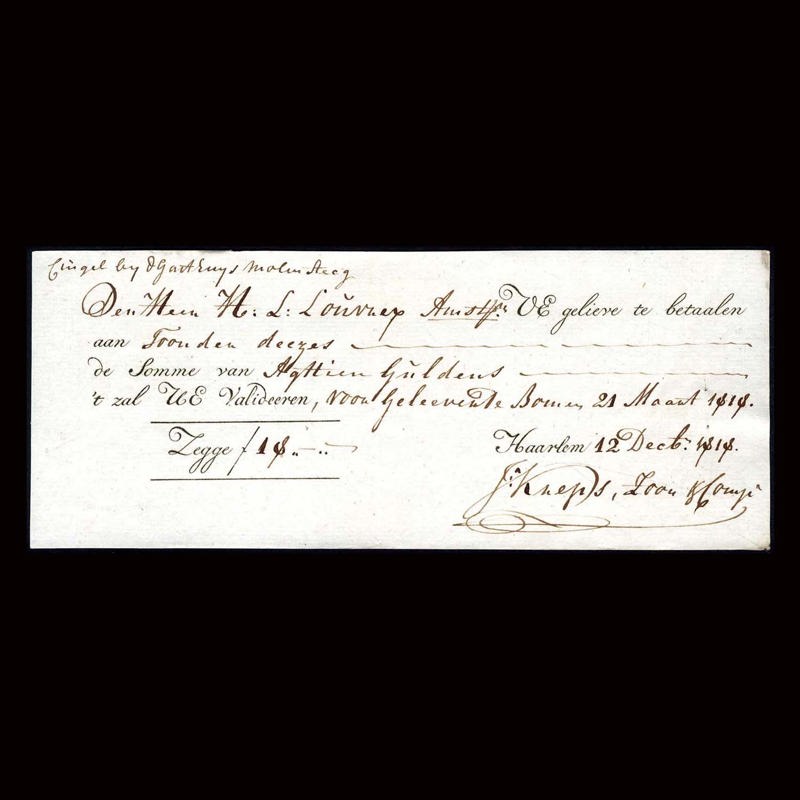 Cingel by d Gasthuys Molen steeg
Den Heer H: L: Louvrex Amstr: UE gelieve te betaalen
aan Toonder deezes
de Somme van Agttien Guldens
't zal UE Valideeren, voor Geleeverde Bomen 21 Maart 1818.
Zegge f 18.. — ..
Haarlem 12 Decb: 1818.
Js: Kneps, Zoon & Comp: